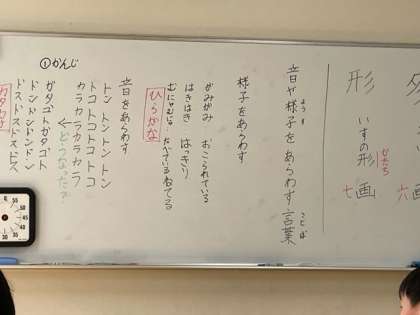 ①かんじ
形
いすの形
かたち
七画
六画
音や様子をあらわす言葉
ようす
ことば
様子をあらわす
がみがみ おこられている
はきはき はっきり
ひらがな
音をあらわす
トン トン トン トン
トコ トコ トコ トコ
カラカラカラカラ
どうなった?
ガタゴトガタゴト
ドンドンドンドン
カタカナ
60
55
50
45
40
35
30